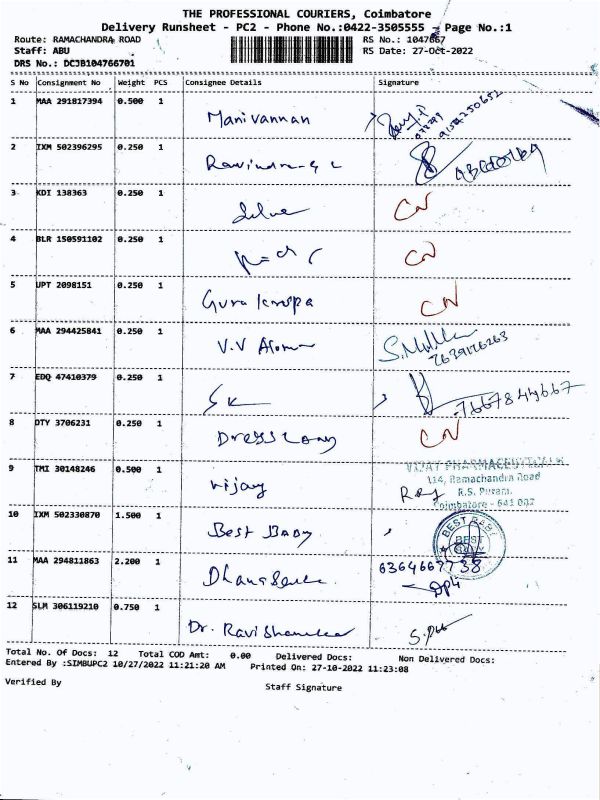 THE PROFESSIONAL COURIERS, Coimbatore
Delivery Runsheet - PC2 - Phone No.:0422-3505555 - Page No.:1
Route: RAMACHANDRA ROAD RS No.: 1047667
Staff: ABU RS Date: 27-Oct-2022
DRS No.: DCJB104766701
S No Consignment No Weight PCS Consignee Details Signature
1 MAA 291817394 0.500 1 Manivannan
2 IXM 502396295 0.250 1
3 KDI 138363 0.250 1 CN
4 BLR 150591102 0.250 1 CN
5 UPT 2098151 0.250 1 Guru CN
6 MAA 294425841 0.250 1 V.V
7 EDQ 47410379 0.250 1 SK 7667849667
8 DTY 3706231 0.250 1 Dress CN
9 TMI 30148246 0.500 1 Vijay
VIJAY PHARMACEUTICALS
114, Ramachandra Road
R.S. Puram,
Coimbatore - 641 002
10 IXM 502330870 1.500 1 Best BABY
BEST BABY
11 MAA 294811863 2.200 1 6364667738
12 SLM 306119210 0.750 1 Dr. Ravishankar
Total No. Of Docs: 12 Total COD Amt: 0.00 Delivered Docs: Non Delivered Docs:
Entered By :SIMBUPC2 10/27/2022 11:21:20 AM Printed On: 27-10-2022 11:23:08
Verified By Staff Signature